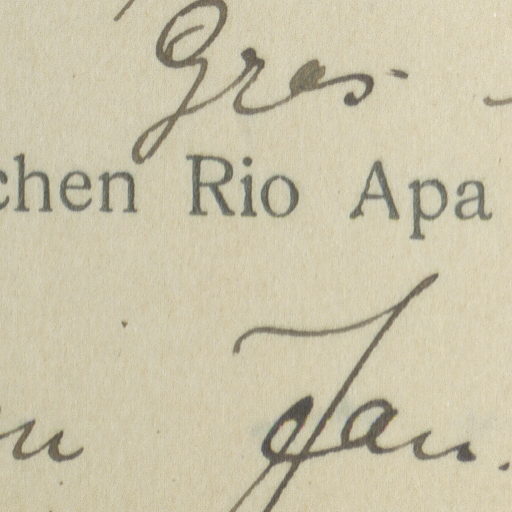 Gras
chen Rio Apa
Jan.